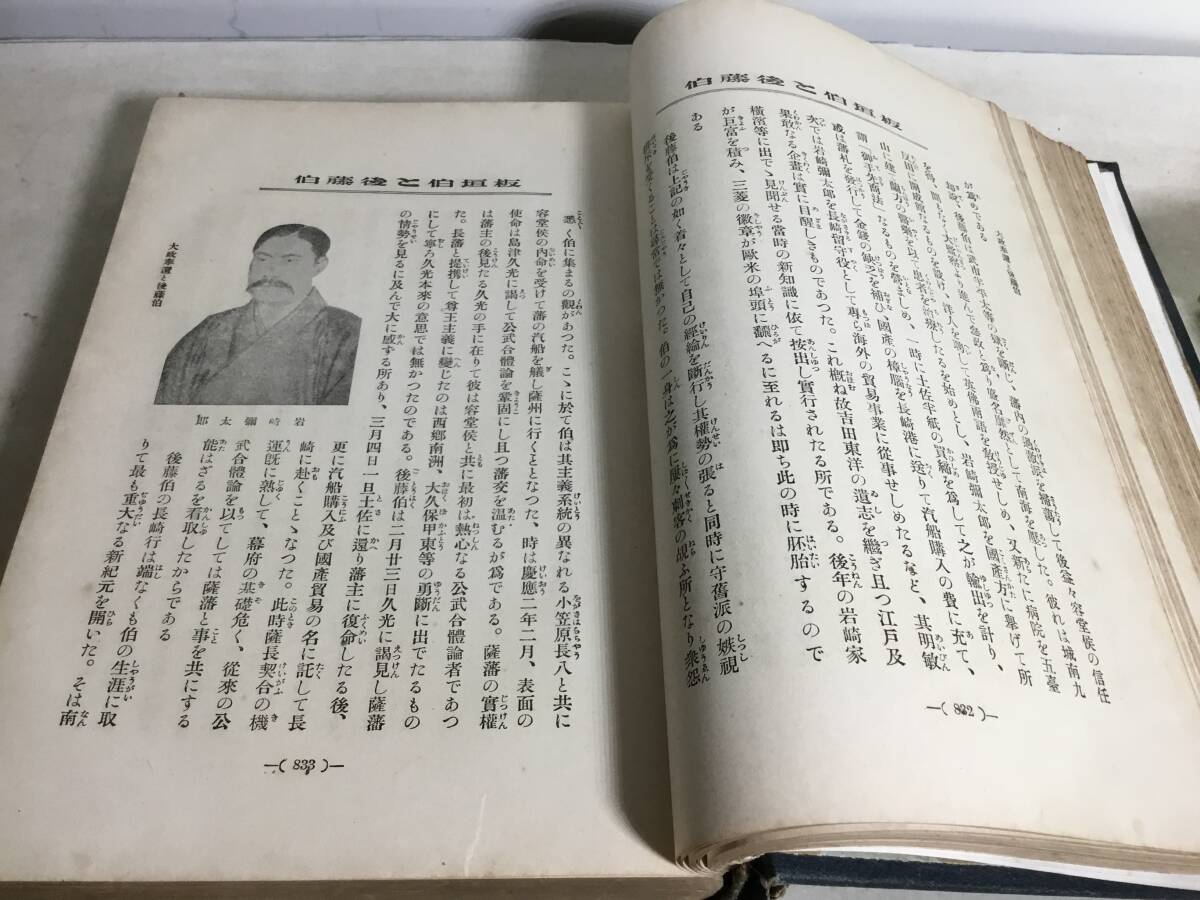 伯藤後と伯垣板
大政奉還と後藤伯
が爲めである
反甲に開成館なるものを設け、洋人を聘して英佛兩語を敎授せしめ、又新たに病院を五臺
山に建て蘭方の醫術を以て患者を治療したるを始めとし、岩崎彌太郎を國產方に擧げて所
謂「御手先商法」なるものを營ましめ、一時に土佐半紙の買縮を爲して之が輸出を計り、
或は藩札を發行して金錢の缺乏を補ひ、國產の樟腦を長崎港に送りて汽船購入の費に充て、
次では岩崎彌太郎を長崎留守役として專ら海外の貿易事業に從事せしめたるなど、其明敏
果敢なる企畫は實に目醒しきものであつた。これ概ね故吉田東洋の遺志を繼ぎ且つ江戶及
橫濱等に出でゝ見聞せる當時の新知識に依て按出し實行されたる所である。後年の岩崎家
が巨富を積み、三菱の徽章が歐米の埠頭に飜へるに至れるは卽ち此の時に胚胎するので
ある
後藤伯は上記の如く着々として自己の經綸を斷行し其權勢の張ると同時に守舊派の嫉視
は無かつた。伯の一身は之が爲に屢々刺客の覘ふ所となり衆怨
—( 832 )—
伯藤後と伯垣板
大政奉還と後藤伯
悉く伯に集まるの觀があつた。こゝに於て伯は其主義系統の異なれる小笠原長八と共に
容堂侯の內命を受けて藩の汽船を艤し薩州に行くことゝなつた、時は慶應二年二月、表面の
使命は島津久光に謁して公武合體論を鞏固にし且つ藩交を温むるが爲である。薩藩の實權
は藩主の後見たる久光の手に在りて彼は容堂侯と共に最初は熱心なる公武合體論者であつ
た。長藩と提携して尊王主義に變じたのは西鄕南洲、大久保甲東等の勇斷に出でたるもの
にして寧ろ久光本來の意思では無かつたのである。後藤伯は二月廿三日久光に謁見し薩藩
の情勢を見るに及んで大に感ずる所あり、三月四日一旦土佐に還り藩主に復命したる後、
更に汽船購入及び國產貿易の名に託して長
崎に赴くことゝなつた。此時薩長契合の機
運旣に熟して、幕府の基礎危く、從來の公
武合體論を以てしては薩藩と事を共にする
能はざるを看取したからである
後藤伯の長崎行は端なくも伯の生涯に取
りて最も重大なる新紀元を開いた。そは南
郎太彌崎岩
—( 833 )—